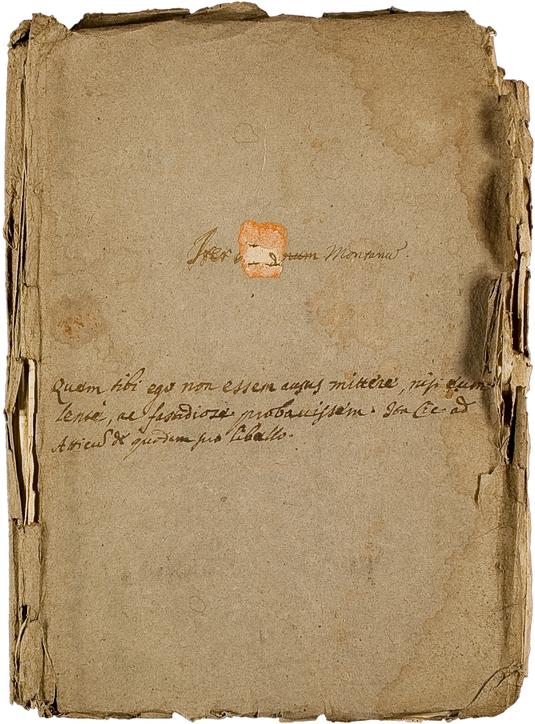 Iter num Montanū
Quem tibi ego non essem ausus mittere, nisi eum
lente, ac fastidiose probavissem. Ita Cic. ad
Atticū de quodam suo libello.